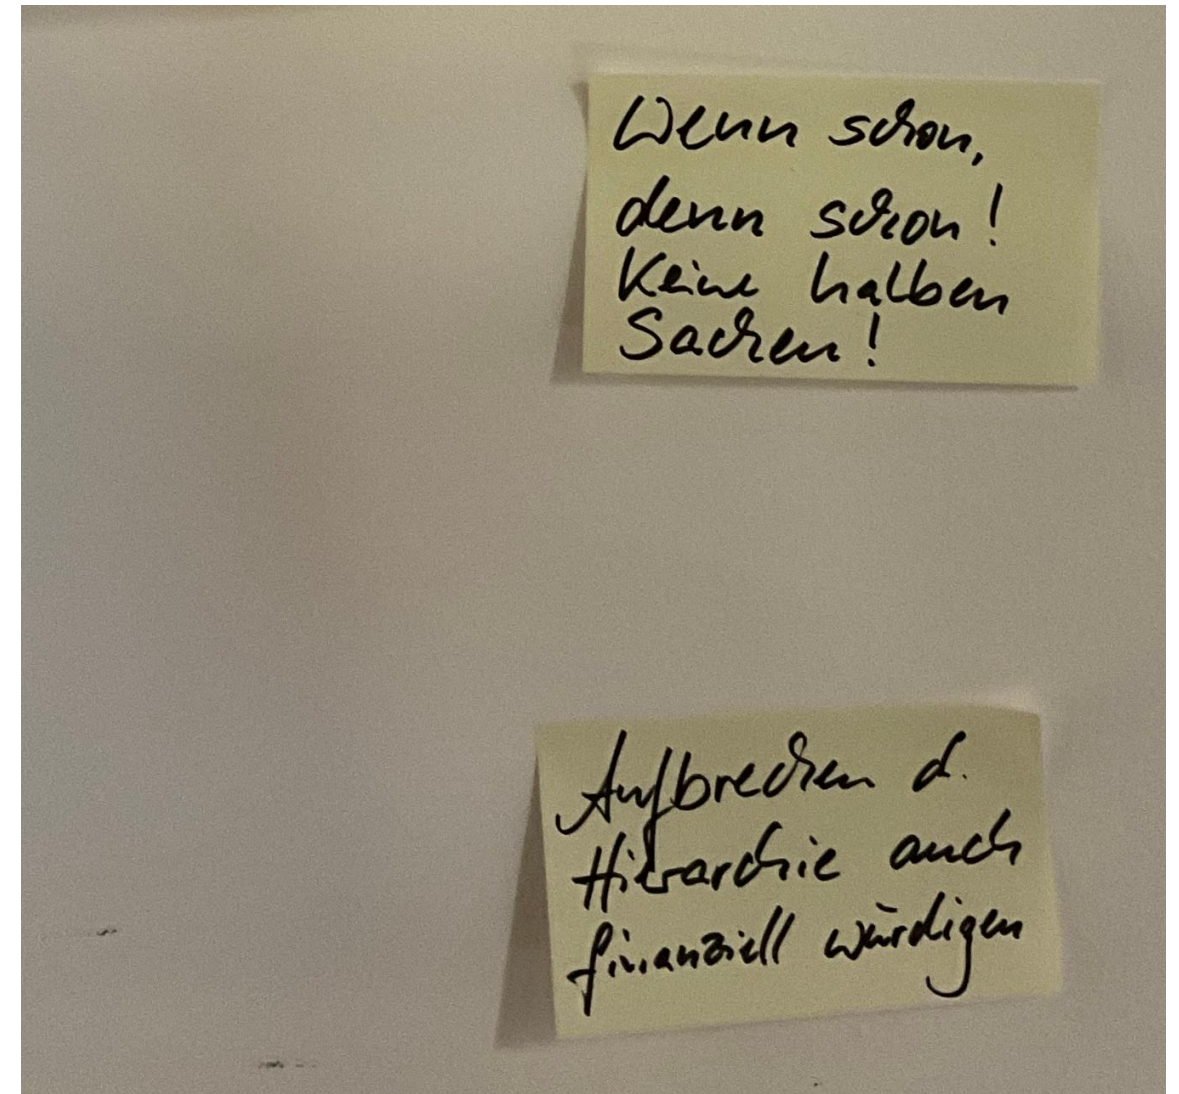 Wenn schon,
denn schon!
Keine halben
Sachen!
Aufbrechen d.
Hierarchie auch
finanziell würdigen